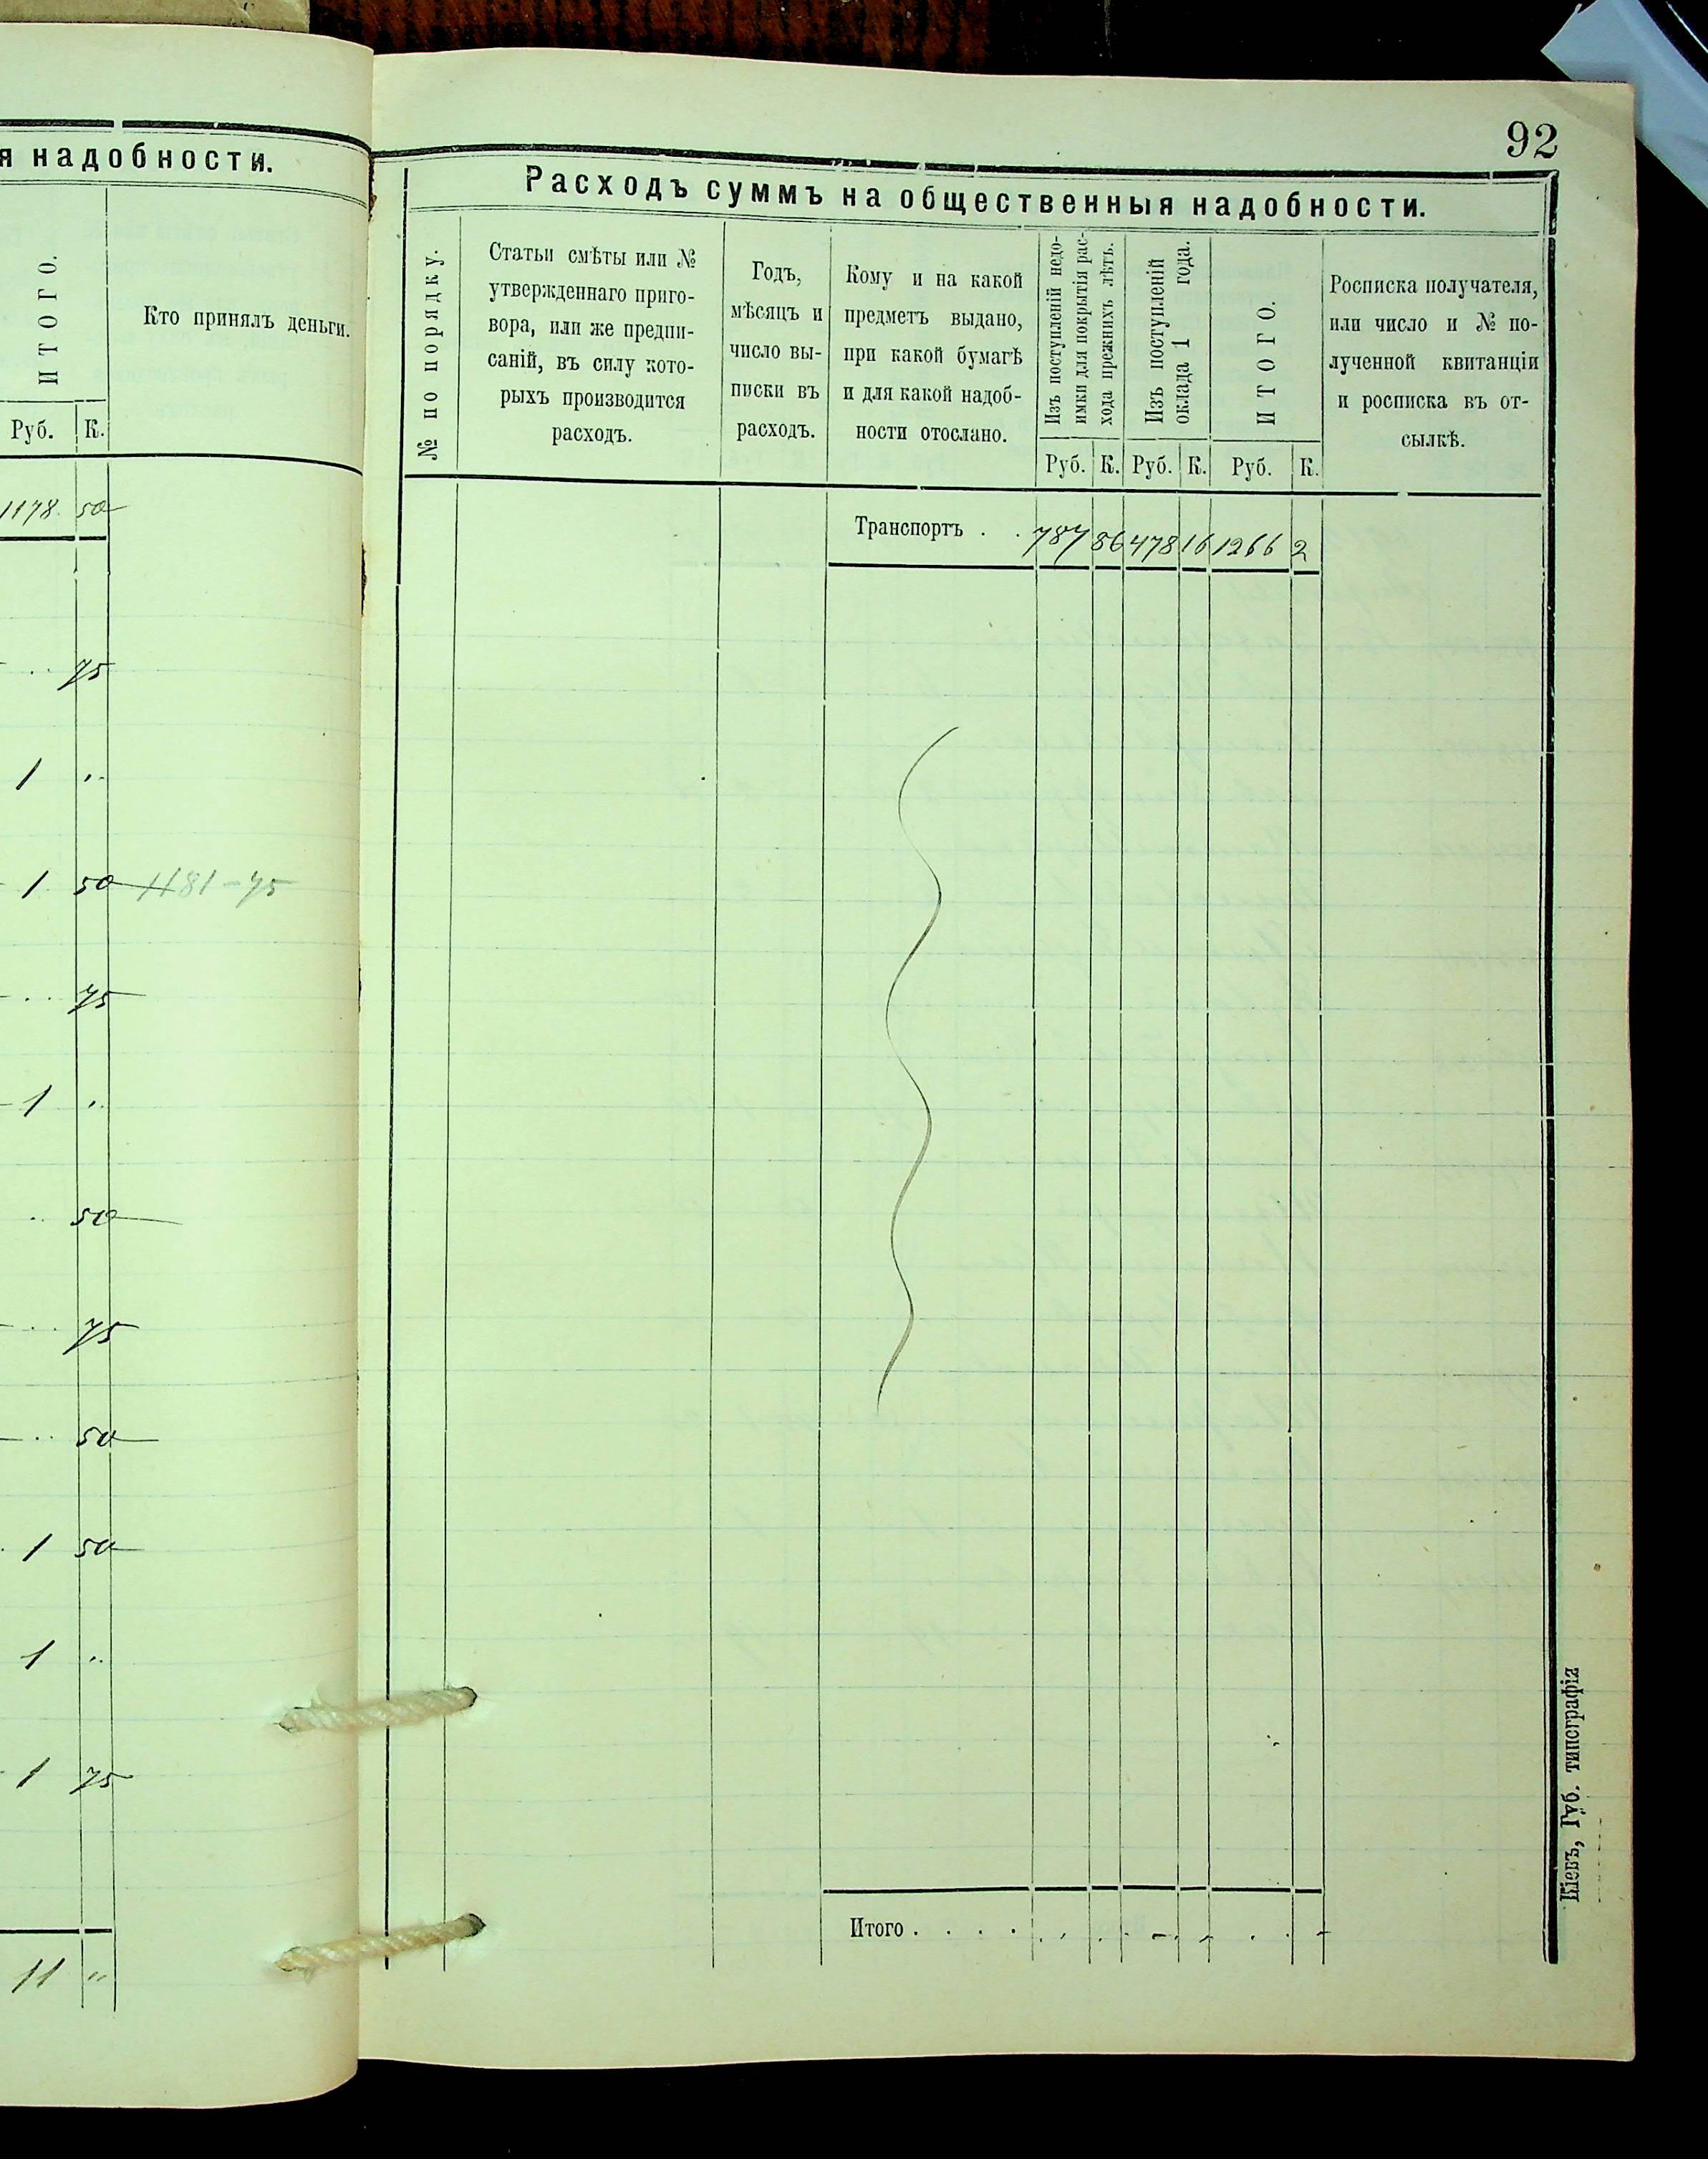 я надобности.
ИТОГО.
Кто принялъ деньги.
Руб. К.
1178 50
75
1 "
1 50 1181-75
75
1 "
50
75
50
1 50
1 "
1 75
11 "
92
Расходъ суммъ на общественныя надобности.
№ по порядку.
Статьи смѣты или №
утвержденнаго приго-
вора, или же предпи-
саній, въ силу кото-
рыхъ производится
расходъ.
Годъ,
мѣсяцъ и
число вы-
писки въ
расходъ.
Кому и на какой
предметъ выдано,
при какой бумагѣ
и для какой надоб-
ности отослано.
Изъ поступленій недо-
имки для покрытія рас-
хода прежнихъ лѣтъ.
Изъ поступленій
оклада 1 года.
ИТОГО.
Росписка получателя,
или число и № по-
лученной квитанціи
и росписка въ от-
сылкѣ.
Руб. К. Руб. К. Руб. К.
Транспортъ . . 787 86 478 16 1266 2
Итого . . . .
Кіевъ, Губ. типографія